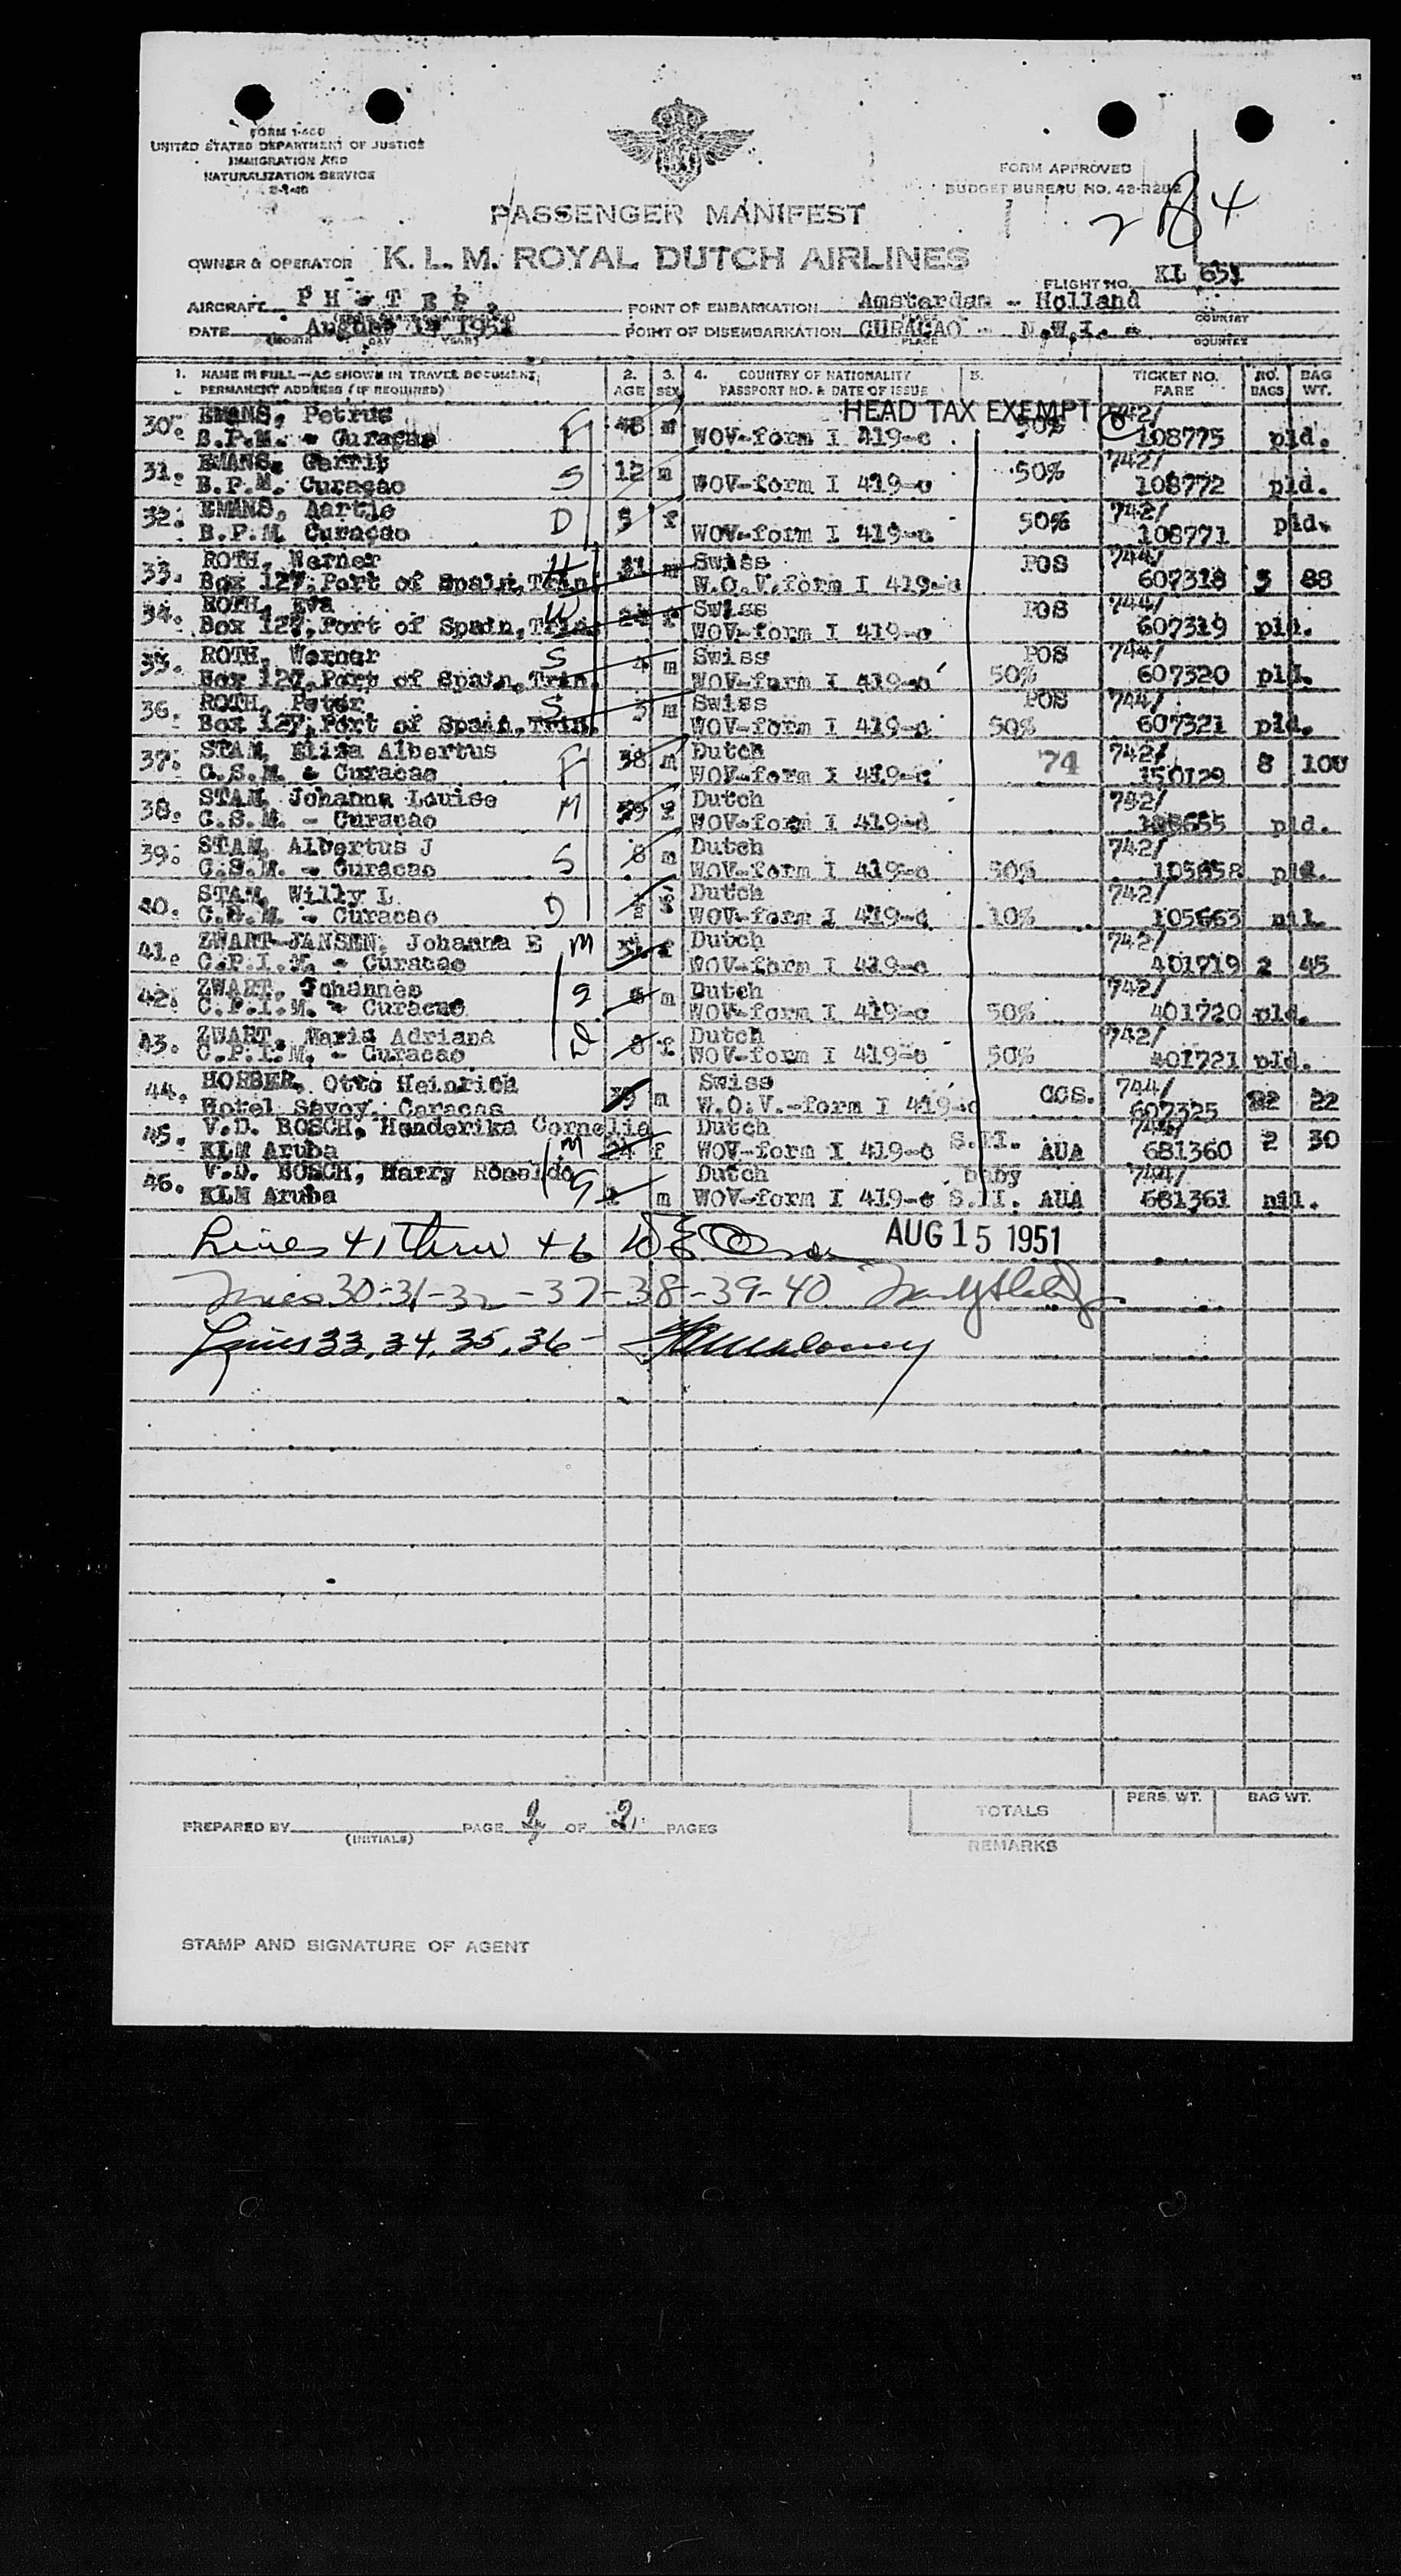 FORM I-466
UNITED STATES DEPARTMENT OF JUSTICE
IMMIGRATION AND
NATURALIZATION SERVICE
FORM APPROVED
BUDGET BUREAU NO. 43-R282
PASSENGER MANIFEST
OWNER & OPERATOR K. L. M. ROYAL DUTCH AIRLINES
FLIGHT NO. KL 651
AIRCRAFT P H - T E P. POINT OF EMBARKATION Amsterdam - Holland
DATE August 14 1951 POINT OF DISEMBARKATION CURAÇAO - N.W.I.
(MONTH DAY YEAR) PLACE COUNTRY
1. NAME IN FULL—AS SHOWN IN TRAVEL DOCUMENT, 2. 3. 4. COUNTRY OF NATIONALITY 5. TICKET NO. NO. BAG
PERMANENT ADDRESS (IF REQUIRED) AGE SEX PASSPORT NO. & DATE OF ISSUE FARE BAGS WT.
HEAD TAX EXEMPT
30. EMANS, Petrus 48 m 50% 742/
B.P.M. - Curaçao F WOV-form I 419-c 108775 pld.
31. EMANS, Gerrit 12 m 50% 742/
B.P.M. Curaçao S WOV-form I 419-c 108772 pld.
32. EMANS, Aartje 5 f 50% 742/
B.P.M. Curaçao D WOV-form I 419-c 108771 pld.
33. ROTH, Werner H 31 m Swiss POS 744/
Box 127, Port of Spain, Trin. W.O.V. form I 419-c 607318 5 88
34. ROTH, Eva W f Swiss POS 744/
Box 127, Port of Spain, Trin. WOV-form I 419-c 607319 pld.
35. ROTH, Werner S 4 m Swiss POS 744/
Box 127, Port of Spain, Trin. WOV-form I 419-c 50% 607320 pld.
36. ROTH, Peter S 3 m Swiss POS 744/
Box 127, Port of Spain, Trin. WOV-form I 419-c 50% 607321 pld.
37. STAM, Eliza Albertus F 38 m Dutch 74 742/
C.S.M. - Curacao WOV-form I 419-c 150129 8 100
38. STAM, Johanna Louise M f Dutch 742/
C.S.M. - Curacao WOV-form I 419-c pld.
39. STAM, Albertus J S 8 m Dutch 742/
C.S.M. - Curacao WOV-form I 419-c 50% 105658 pld.
40. STAM, Willy L. D Dutch 742/
C.S.M. - Curacao WOV-form I 419-c 10% 105663 nil.
41. ZWART-JANSEN, Johanna E M f Dutch 742/
C.P.I.M. - Curacao WOV-form I 419-c 401719 2 45
42. ZWART, Johannes S m Dutch 742/
C.P.I.M. - Curacao WOV-form I 419-c 50% 401720 pld.
43. ZWART, Maria Adriana D 8 f Dutch 742/
C.P.I.M. - Curacao WOV-form I 419-c 50% 401721 pld.
44. HORBER, Otto Heinrich m Swiss CCS. 744/
Hotel Savoy, Caracas W.O.V.-form I 419-c 607325 22
45. V.D. BOSCH, Henderika Cornelia M f Dutch S.M. AUA 744/
KLM Aruba WOV-form I 419-c 681360 2 30
46. V.D. BOSCH, Harry Ronaldo S m Dutch baby 744/
KLM Aruba WOV-form I 419-c S.M. AUA 681361 nil.
Lines 41 thru 46 AUG 15 1951
Lines 30-31-32-37-38-39-40
Lines 33, 34, 35, 36 -
TOTALS PERS. WT. BAG WT.
PREPARED BY (INITIALS) PAGE 2 OF 2 PAGES
REMARKS
STAMP AND SIGNATURE OF AGENT